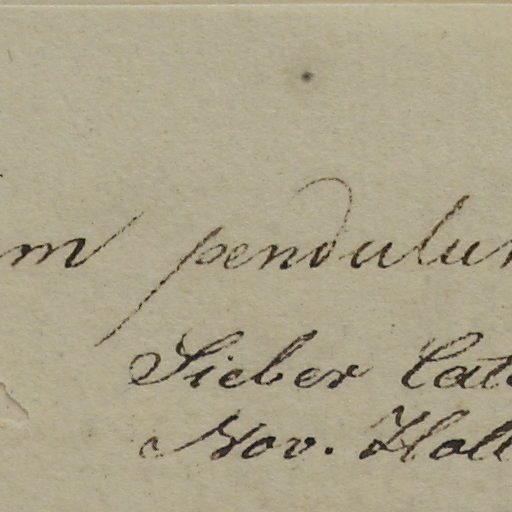 m pendulu
Sieber Cat
Nov. Holl